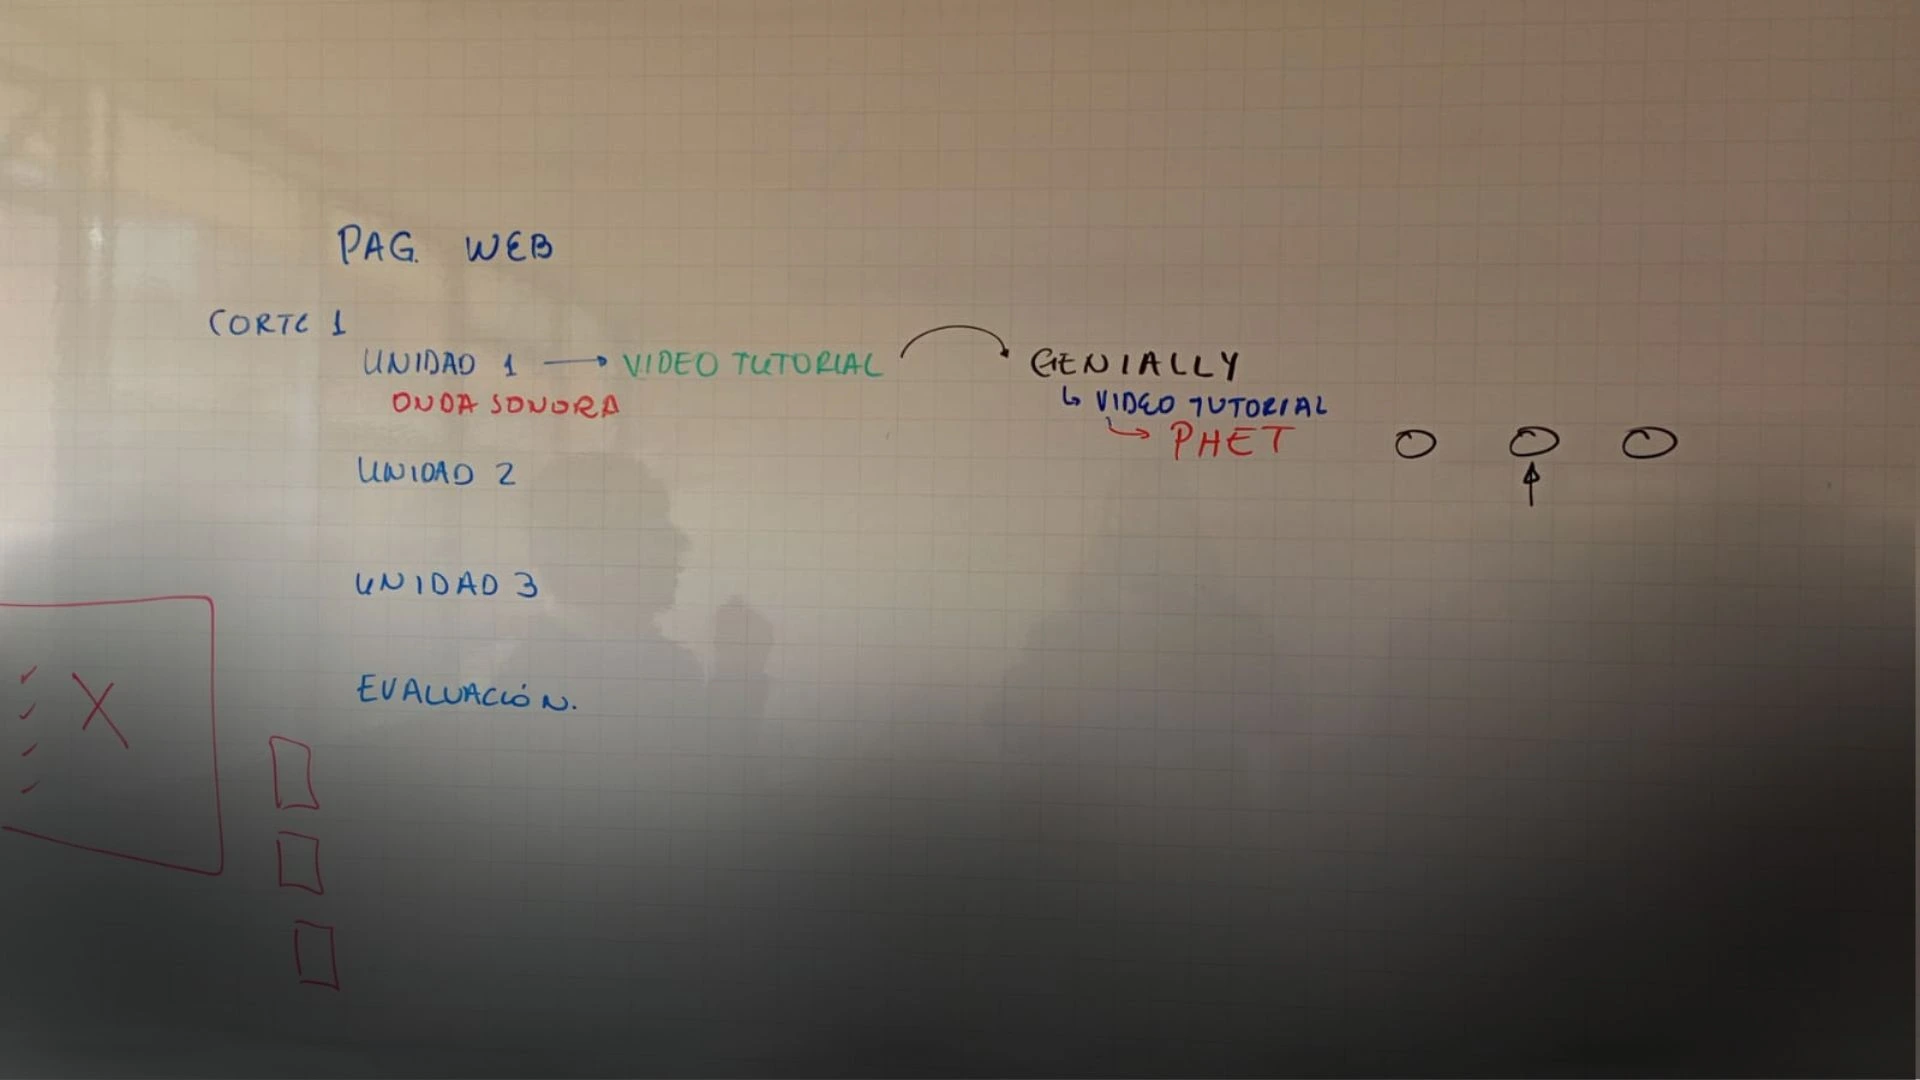 PAG. WEB
CORTE 1
UNIDAD 1 → VIDEO TUTORIAL
GENIALLY
ONDA SONORA
↳ VIDEO TUTORIAL
↳ PHET
UNIDAD 2
UNIDAD 3
EVALUACIÓN.